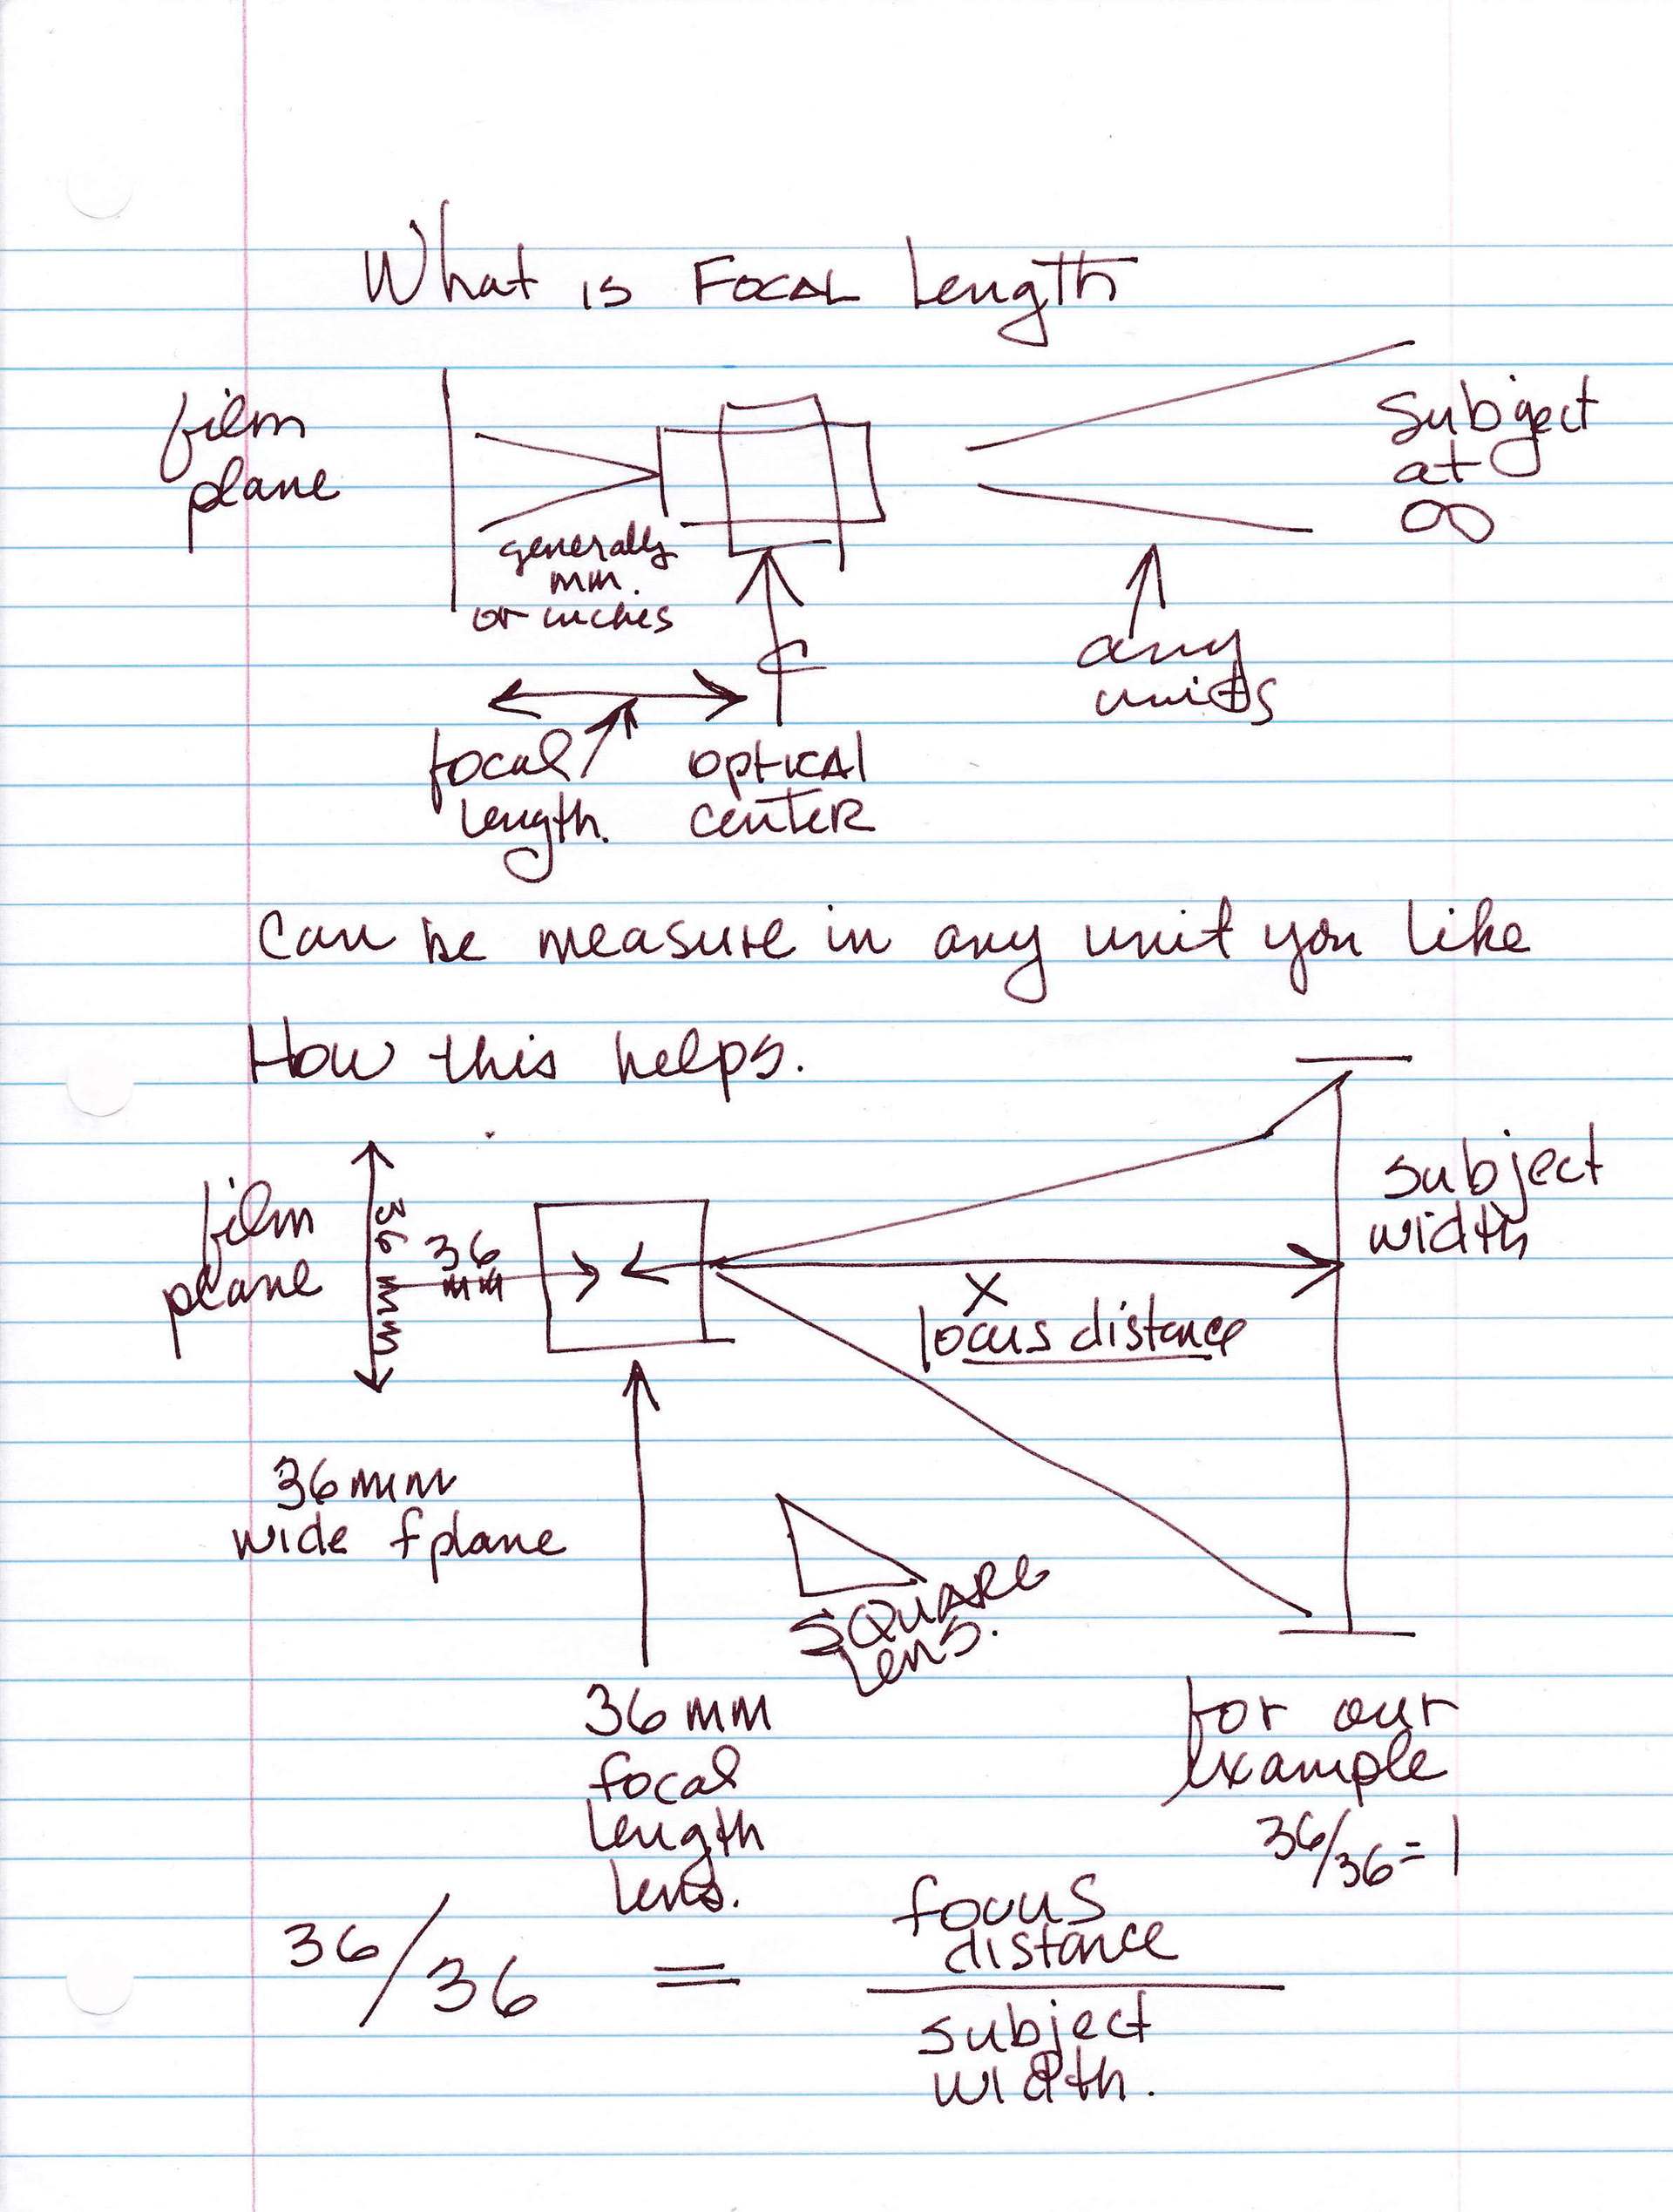 What is Focal Length
film
plane
generally
mm.
or inches
Subject
at
∞
any
units
focal
length.
optical
center
Can be measure in any unit you like
How this helps.
film
plane
36 mm
36
mm
subject
width
X
focus distance
36 mm
wide f plane
SQUARE
Lens.
36 mm
focal
length
lens.
for our
example
36/36 = 1
36/36 =
focus
distance
subject
width.